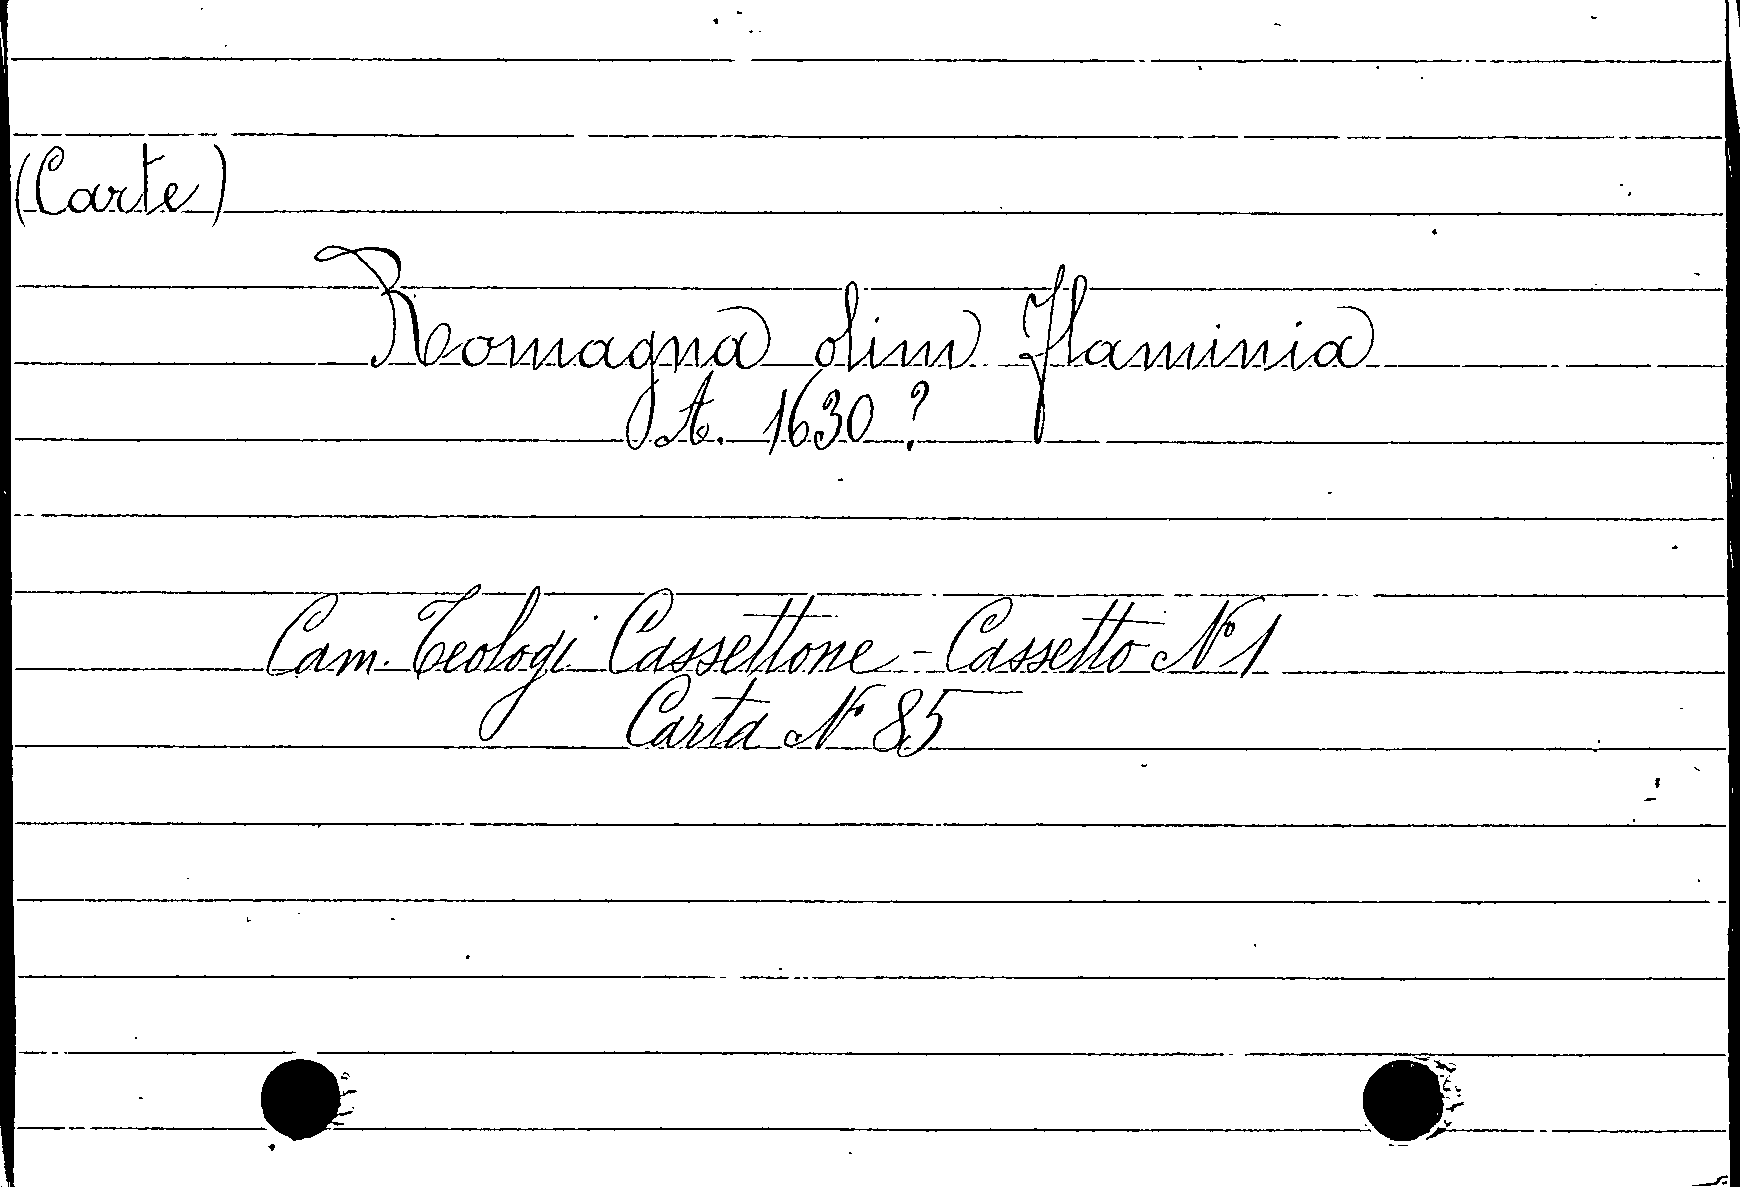 (Carte)
Romagna olim Flaminia
A. 1630?
Cam. Teologi Cassettone - Cassetto N° 1
Carta N° 85